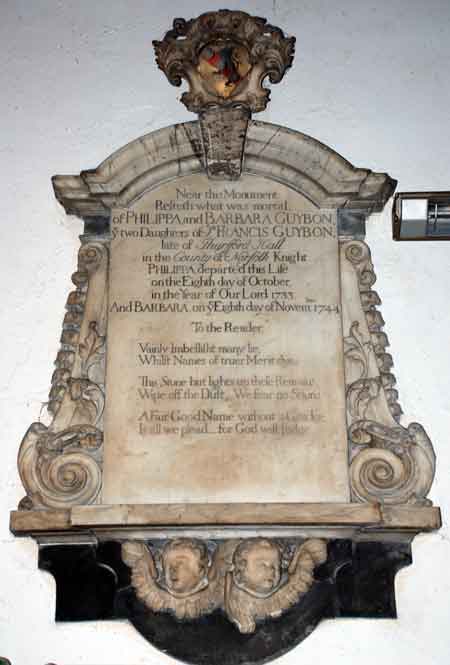 Near this Monument
Resteth what was mortal
of PHILIPPA, and BARBARA GUYBON,
ye two Daughters of Sr. FRANCIS GUYBON,
late of Thursford Hall
in the County of Norfolk Knight
PHILIPPA departed this Life
on the Eighth day of October,
in the Year of Our Lord 1733.
And BARBARA on ye Eighth day of Novem.ber 1744.
To the Reader.
Vainly Imbellisht many lie,
Whilst Names of truer Merit dye.
This Stone but lights on these Remains
Wipe off the Dust, We fear no Stains
A Fair Good Name without a
Is all we plead for God will Judge.